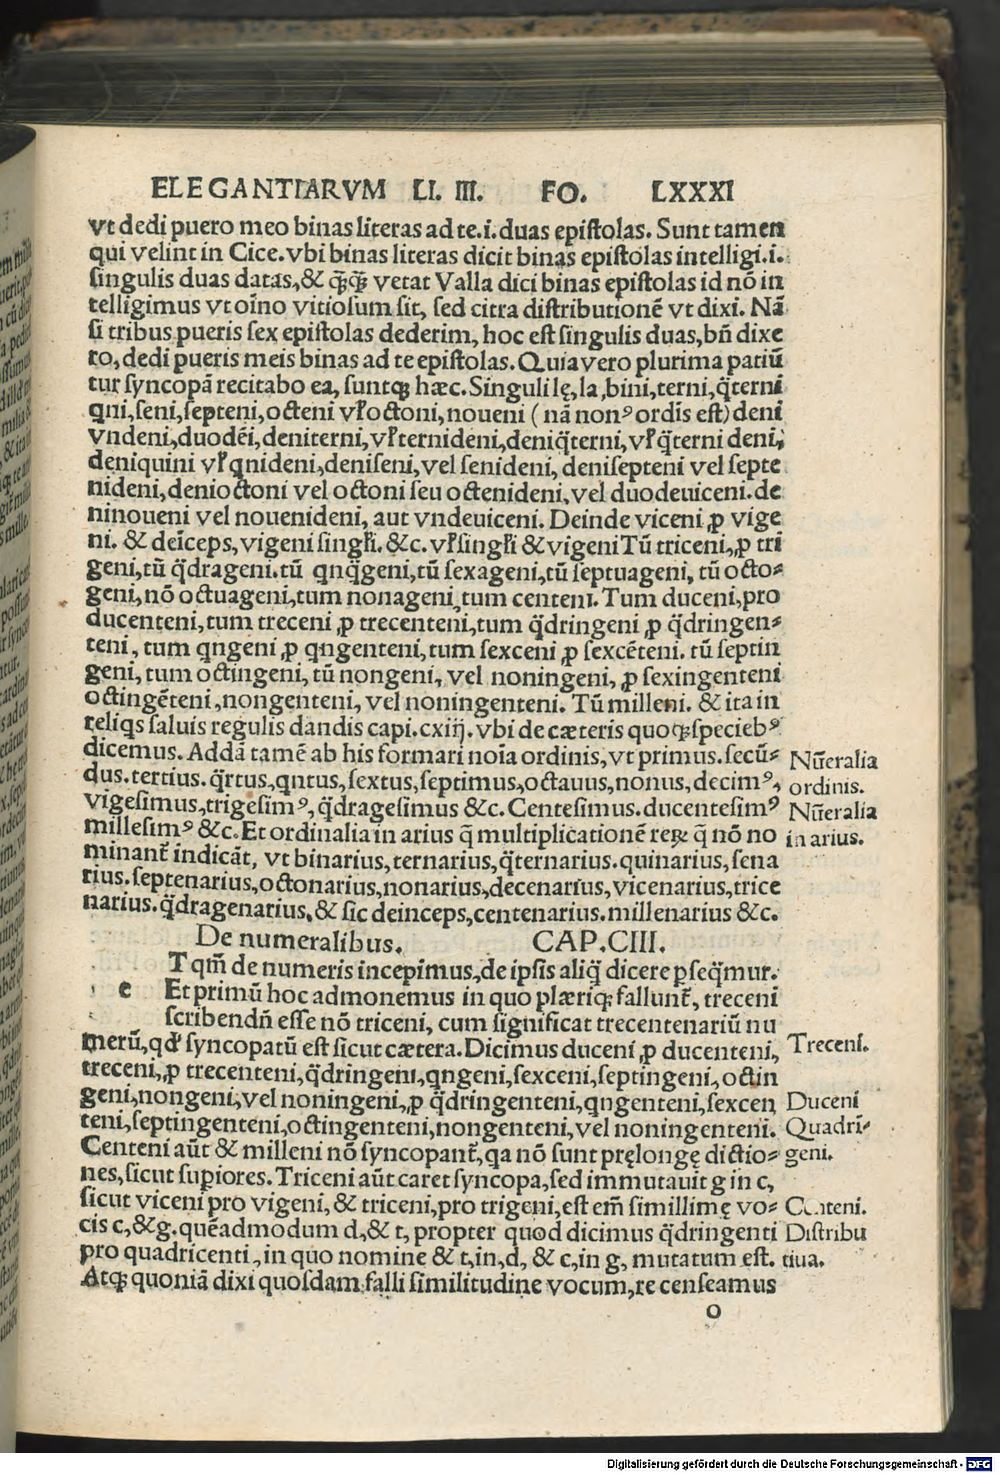 ELEGANTIARVM LI. III. FO. LXXXI
vt dedi puero meo binas literas ad te.i.duas epiſtolas. Sunt tamen
qui velint in Cice.vbi binas literas dicit binas epiſtolas intelligi.i.
ſingulis duas datas,& q̄q̄ vetat Valla dici binas epiſtolas id nō in
telligimus vt oīno vitioſum ſit, ſed citra diſtributionē vt dixi. Nā
ſi tribus pueris ſex epiſtolas dederim, hoc eſt ſingulis duas,bn̄ dixe
ro,dedi pueris meis binas ad te epiſtolas. Quia vero plurima patiū
tur ſyncopā recitabo ea, ſuntqꝫ hæc. Singuli lę,la,bini,terni,q̄terni
qni,ſeni,ſepteni,octeni vľ octoni,noueni (nā nonꝰ ordīs eſt) deni
vndeni,duodēi,deniterni,vľ ternideni,deniq̄terni,vľ q̄terni deni,
deniquini vľ qnideni,deniſeni,vel ſenideni, deniſepteni vel ſepte
nideni,denioctoni vel octoni ſeu octenideni,vel duodeuiceni.de
ninoueni vel nouenideni, aut vndeuiceni. Deinde viceni ꝓ vige
ni. & deīceps,vigeni ſingľi. &c. vľ ſingľi & vigeni Tū triceni,ꝓ tri
geni,tū q̄drageni.tū qnq̄geni,tū ſexageni,tū ſeptuageni, tū octo⸗
geni,nō octuageni,tum nonageni,tum centeni. Tum duceni,pro
ducenteni,tum treceni ꝓ trecenteni,tum q̄dringeni ꝓ q̄dringen⸗
teni, tum qngeni ꝓ qngenteni,tum ſexceni ꝓ ſexcēteni. tū ſeptin
geni, tum octingeni, tū nongeni, vel noningeni, ꝓ ſexingenteni
octingēteni,nongenteni, vel noningenteni. Tū milleni. & ita in
reliqs ſaluis regulis dandis capi.cxiij.vbi de cæteris quoqꝫ ſpeciebꝰ
dicemus. Addā tamē ab his formari noīa ordinis,vt primus.ſecū⸗
dus.tertius.q̄rtus,qntus,ſextus,ſeptimus,octauus,nonus,decimꝰ,
vigeſimus,trigeſimꝰ,q̄drageſimus &c. Centeſimus.ducenteſimꝰ
milleſimꝰ &c. Et ordinalia in arius q̄ multiplicationē reꝝ q̄ nō no
minanť indicāt, vt binarius,ternarius,q̄ternarius.quinarius,ſena
rius.ſeptenarius,octonarius,nonarius,decenarius,vicenarius,trice
narius.q̄dragenarius,& ſic deinceps,centenarius.millenarius &c.
Nūeralia
ordinis.
Nūeralia
in arius.
De numeralibus. CAP.CIII.
e T qm̄ de numeris incepimus,de ipſis aliq̄ dicere ꝑſeq̄mur.
Et primū hoc admonemus in quo plæriqꝫ fallunť, treceni
ſcribendn̄ eſſe nō triceni, cum ſignificat trecentenariū nu
merū,qď ſyncopatū eſt ſicut cætera.Dicimus duceni ꝓ ducenteni,
treceni,ꝓ trecenteni,q̄dringeni,qngeni,ſexceni,ſeptingeni,octin
geni,nongeni,vel noningeni,ꝓ q̄dringenteni,qngenteni,ſexcen
teni,ſeptingenteni,octingenteni,nongenteni,vel noningenteni.
Centeni aūt & milleni nō ſyncopanť,qa nō ſunt pręlongę dictio⸗
nes,ſicut ſuꝑiores. Triceni aūt caret ſyncopa,ſed immutauit g in c,
ſicut viceni pro vigeni,& triceni,pro trigeni,eſt em̄ ſimillimę vo⸗
cis c,&g.quēadmodum d,& t, propter quod dicimus q̄dringenti
pro quadricenti, in quo nomine & t,in,d, & c,in g, mutatum eſt.
Atqꝫ quoniā dixi quoſdam falli ſimilitudine vocum,recenſeamus
Treceni.
Duceni
Quadri⸗
geni.
Centeni.
Diſtribu
tiua.
o
Digitalisierung gefördert durch die Deutsche Forschungsgemeinschaft - DFG